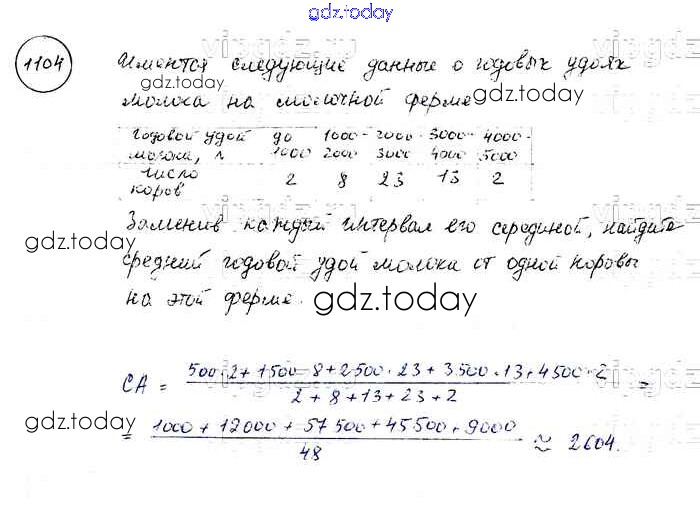 gdz.today
1104 Имеются следующие данные о годовых удоях
молока на молочной ферме
gdz.today
gdz.today
годовой удой до 1000- 2000- 3000- 4000-
молока, л 1000 2000 3000 4000 5000
число
коров 2 8 23 13 2
Заменив каждый интервал его серединой, найдите
gdz.today
средний годовой удой молока от одной коровы
на этой ферме.
gdz.today
СА = 500·2+1500·8+2500·23+3500·13+4500·2 =
2+8+13+23+2
gdz.today
= 1000+12000+57500+45500+9000 ≈ 2604.
48